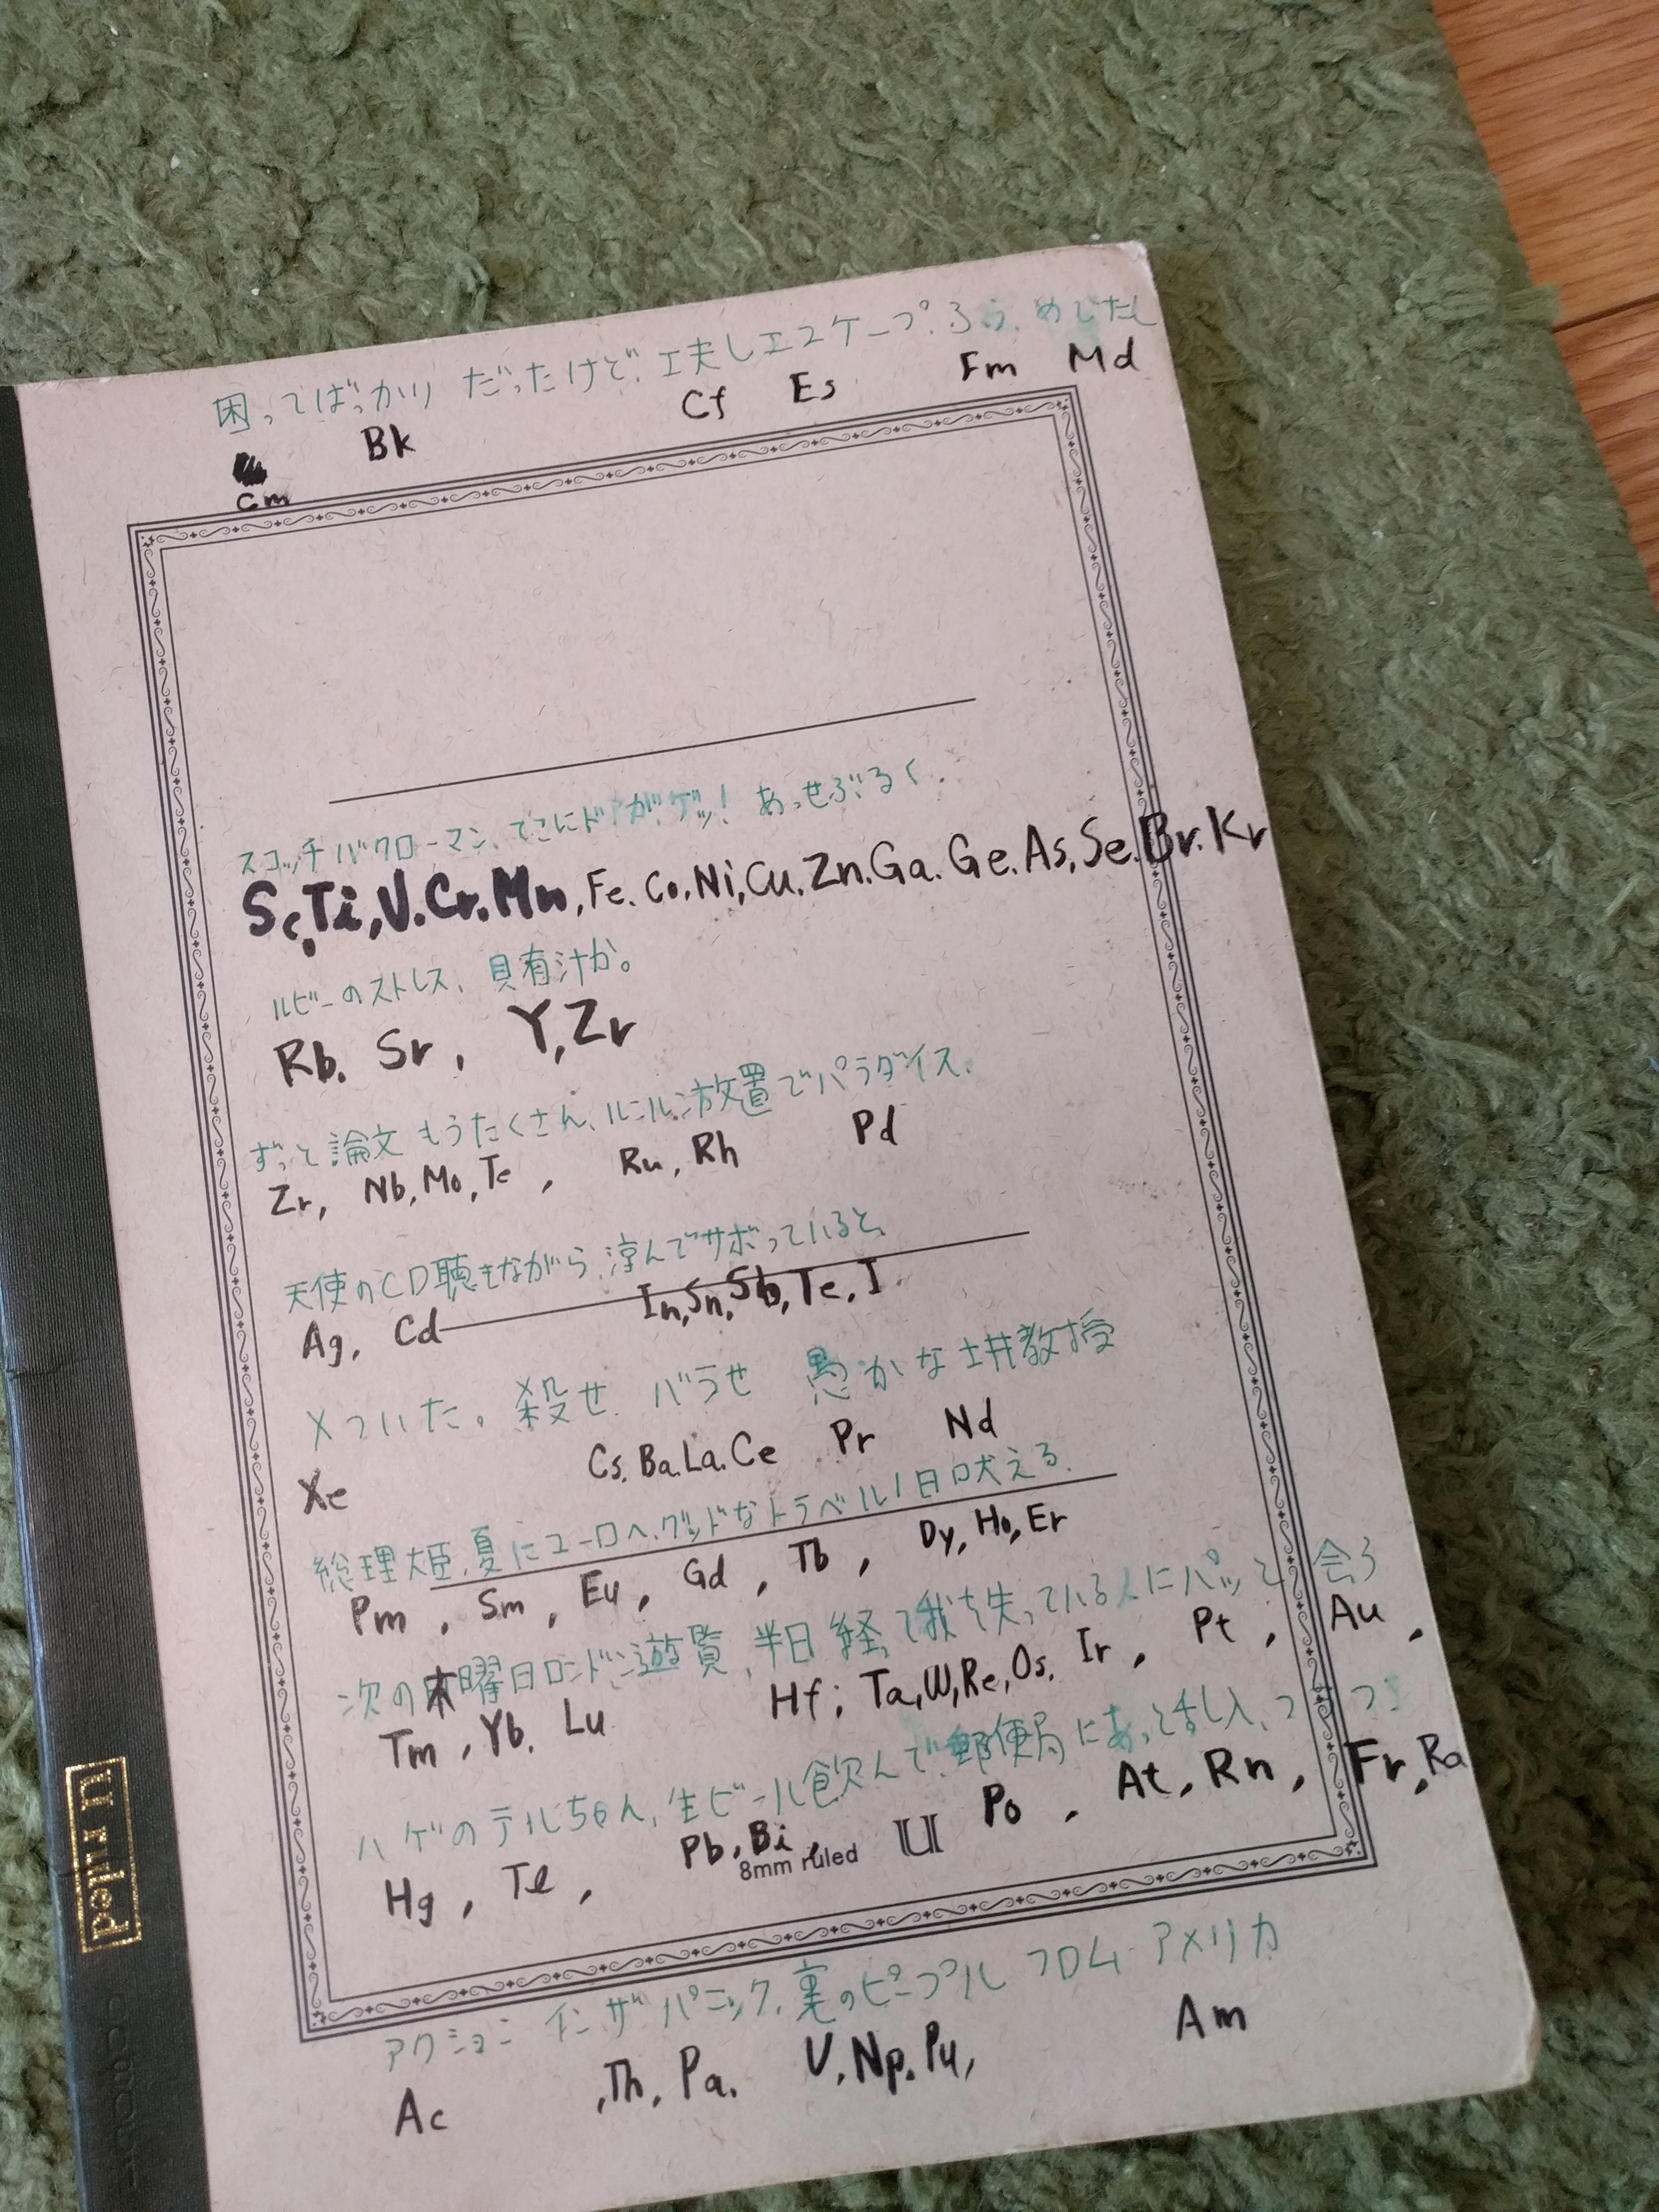 困ってばっかりだったけど、工夫しエスケープ。ふう、めでたし
Bk Cf Es Fm Md
Cm
スコッチバクローマン、てこにドアがゲッ!あっせぶるく.
Sc,Ti,V.Cr.Mn,Fe.Co.Ni,Cu.Zn.Ga.Ge.As,Se.Br.Kr
ルビーのストレス、具有汁か。
Rb. Sr, Y,Zr
ずっと論文もうたくさん、ルンルン放置でパラダイス.
Zr, Nb,Mo,Tc, Ru,Rh Pd
天使のCD聴きながら、淳んでサボっていると、
Ag, Cd In,Sn,Sb,Te,I
Xついた。殺せ バラせ 愚かな土井教授
Xe Cs.Ba.La.Ce Pr Nd
総理大臣、夏にユーロへ、グッドなトラベル1日吠える.
Pm, Sm, Eu, Gd, Tb, Dy,Ho,Er
次の木曜日ロンドン遊覧、半日経て我を失っている人にパッと会う
Tm,Yb. Lu Hf; Ta,W,Re,Os. Ir, Pt, Au,
ハゲのテルちゃん,生ビール飲んで、郵便局にあっと乱入、
Hg, Tl, Pb,Bi, Po, At,Rn, Fr,Ra
8mm ruled U
アクション インザ パニック、裏のピープル フロム アメリカ
Ac ,Th,Pa. U,Np.Pu, Am
U ruled